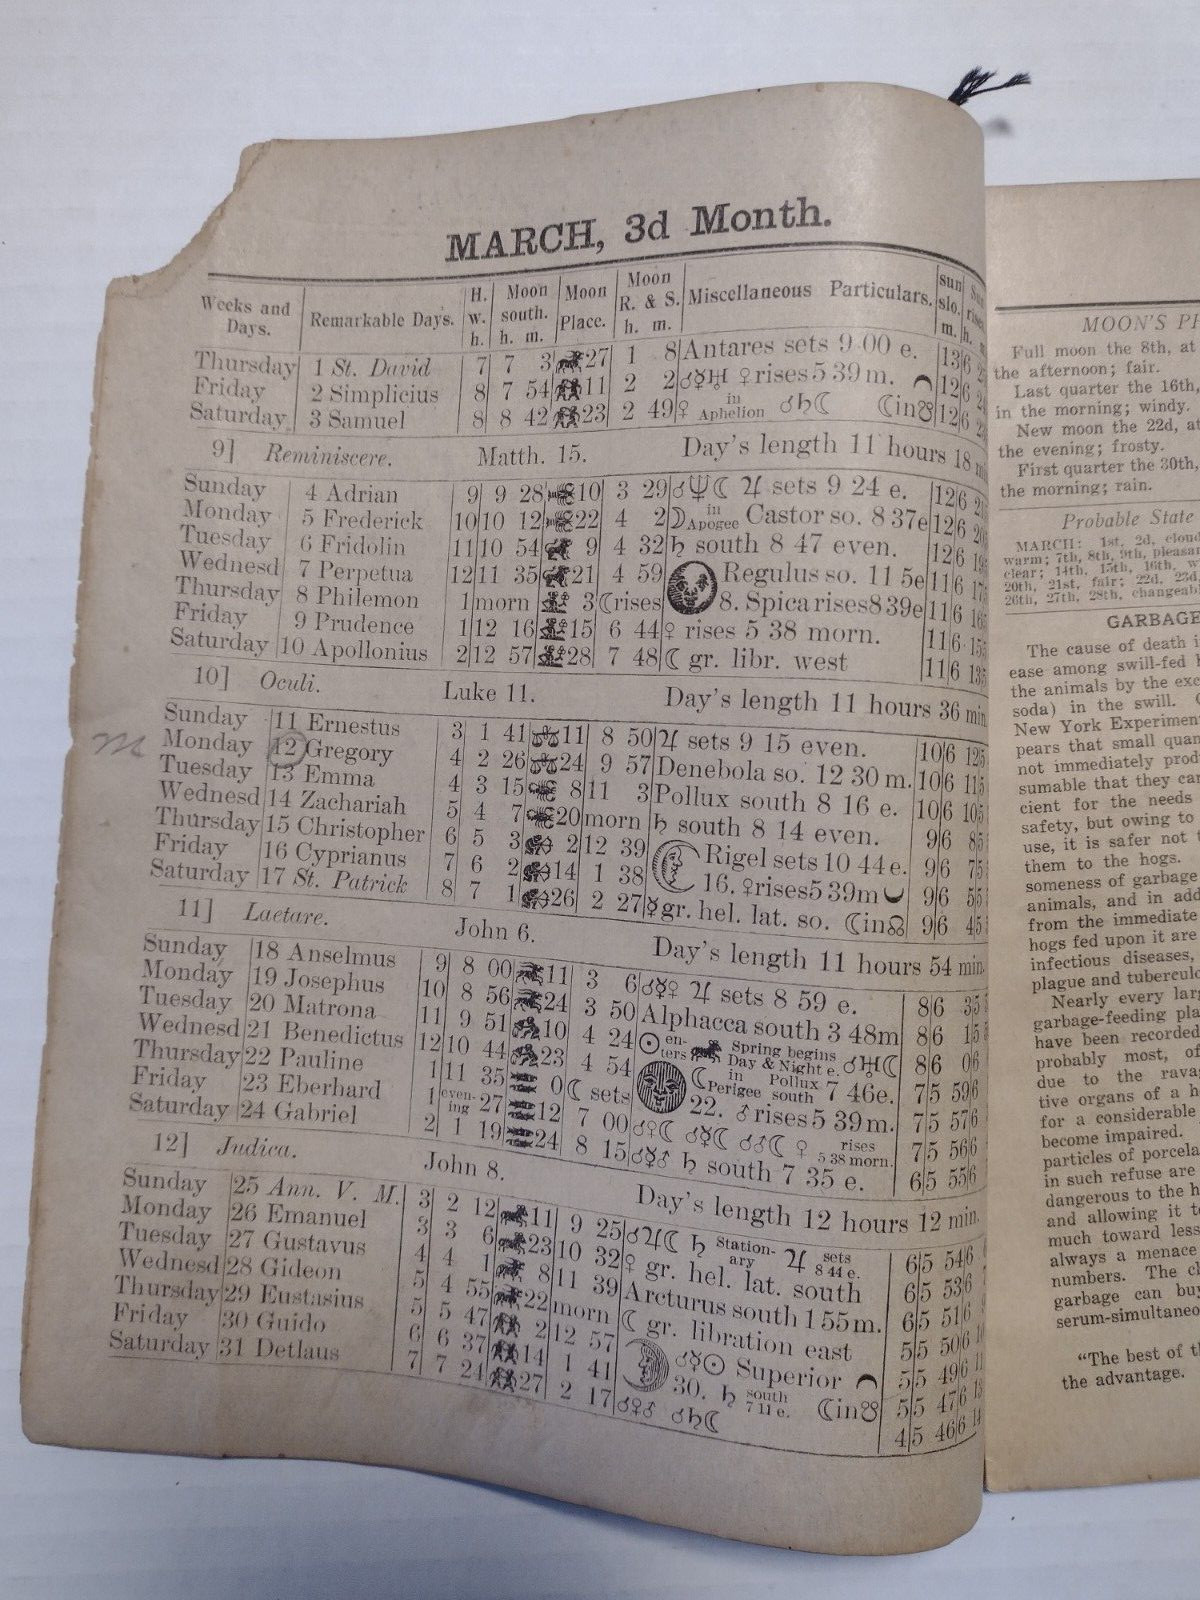 MARCH, 3d Month.
Weeks and Days. Remarkable Days. H. w. h. Moon south. h. m. Moon Place. Moon R. & S. h. m. Miscellaneous Particulars. sun slo. m. Sun rises. h. m
Thursday 1 St. David 7 7 3 27 1 8 Antares sets 9 00 e. 13 6
Friday 2 Simplicius 8 7 54 11 2 2 ☌☿♅ ♀ rises 5 39 m. 12 6
Saturday 3 Samuel 8 8 42 23 2 49 ♀ in Aphelion ☌♄☾ ☾in☋ 12 6
9] Reminiscere. Matth. 15. Day's length 11 hours 18 m
Sunday 4 Adrian 9 9 28 10 3 29 ☌♆☾ ♃ sets 9 24 e. 12 6
Monday 5 Frederick 10 10 12 22 4 2 ☽ in Apogee Castor so. 8 37e 12 6
Tuesday 6 Fridolin 11 10 54 9 4 32 ♄ south 8 47 even. 12 6
Wednesd 7 Perpetua 12 11 35 21 4 59 Regulus so. 11 5e 11 6
Thursday 8 Philemon 1 morn 3 ☾rises 8. Spica rises 8 39e 11 6
Friday 9 Prudence 1 12 16 15 6 44 ♀ rises 5 38 morn. 11 6 15
Saturday 10 Apollonius 2 12 57 28 7 48 ☾ gr. libr. west 11 6 13
10] Oculi. Luke 11. Day's length 11 hours 36 min.
Sunday 11 Ernestus 3 1 41 11 8 50 ♃ sets 9 15 even. 10 6 12
m Monday 12 Gregory 4 2 26 24 9 57 Denebola so. 12 30 m. 10 6 11
Tuesday 13 Emma 4 3 15 8 11 3 Pollux south 8 16 e. 10 6 10
Wednesd 14 Zachariah 5 4 7 20 morn ♄ south 8 14 even. 9 6 8
Thursday 15 Christopher 6 5 3 2 12 39 Rigel sets 10 44 e. 9 6 7
Friday 16 Cyprianus 7 6 2 14 1 38 16. ♀rises 5 39m 9 6 5
Saturday 17 St. Patrick 8 7 1 26 2 27 ☿gr. hel. lat. so. ☾in☊ 9 6 4
11] Laetare. John 6. Day's length 11 hours 54 min.
Sunday 18 Anselmus 9 8 00 11 3 6 ☌☿♀ ♃ sets 8 59 e. 8 6 3
Monday 19 Josephus 10 8 56 24 3 50 Alphacca south 3 48m 8 6 1
Tuesday 20 Matrona 11 9 51 10 4 24 ☉ enters Spring begins Day & Night e. ☌♅☾ 8 6 0
Wednesd 21 Benedictus 12 10 44 23 4 54 ☾ in Perigee Pollux south 7 46e. 7 5 59
Thursday 22 Pauline 1 11 35 0 ☾ sets 22. ♂ rises 5 39 m. 7 5 57
Friday 23 Eberhard 1 evening 27 12 7 00 ☌♀☾ ☌☿☾ ☌♂☾ ♀ rises 5 38 morn. 7 5 56
Saturday 24 Gabriel 2 1 19 24 8 15 ☌☿♂ ♄ south 7 35 e. 6 5 55
12] Judica. John 8. Day's length 12 hours 12 min.
Sunday 25 Ann. V. M. 3 2 12 11 9 25 ☌♃☾ ♄ Stationary ♃ sets 8 44 e. 6 5 54
Monday 26 Emanuel 3 3 6 23 10 32 ♀ gr. hel. lat. south 6 5 53
Tuesday 27 Gustavus 4 4 1 8 11 39 Arcturus south 1 55 m. 6 5 51
Wednesd 28 Gideon 5 4 55 22 morn ☾ gr. libration east 5 5 50
Thursday 29 Eustasius 5 5 47 2 12 57 ☌☿☉ Superior 5 5 49
Friday 30 Guido 6 6 37 14 1 41 30. ♄ south 7 11 e. ☾in☋ 5 5 47
Saturday 31 Detlaus 7 7 24 27 2 17 ☌♀♂ ☌♄☾ 4 5 46
MOON'S PH
Full moon the 8th, at
the afternoon; fair.
Last quarter the 16th,
in the morning; windy.
New moon the 22d, at
the evening; frosty.
First quarter the 30th,
the morning; rain.
Probable State
MARCH: 1st, 2d, cloud
warm; 7th, 8th, 9th, pleasan
clear; 14th, 15th, 16th, w
20th, 21st, fair; 22d, 23d,
26th, 27th, 28th, changeabl
GARBAGE
The cause of death i
ease among swill-fed h
the animals by the exc
soda) in the swill.
New York Experimen
pears that small quan
not immediately prod
sumable that they ca
cient for the needs
safety, but owing to
use, it is safer not t
them to the hogs.
someness of garbage
animals, and in add
from the immediate
hogs fed upon it are
infectious diseases,
plague and tuberculo
Nearly every larg
garbage-feeding pla
have been recorded
probably most, of
due to the ravag
tive organs of a h
for a considerable
become impaired.
particles of porcela
in such refuse are
dangerous to the h
and allowing it to
much toward less
always a menace
numbers. The ch
garbage can buy
serum-simultaneo
"The best of th
the advantage.